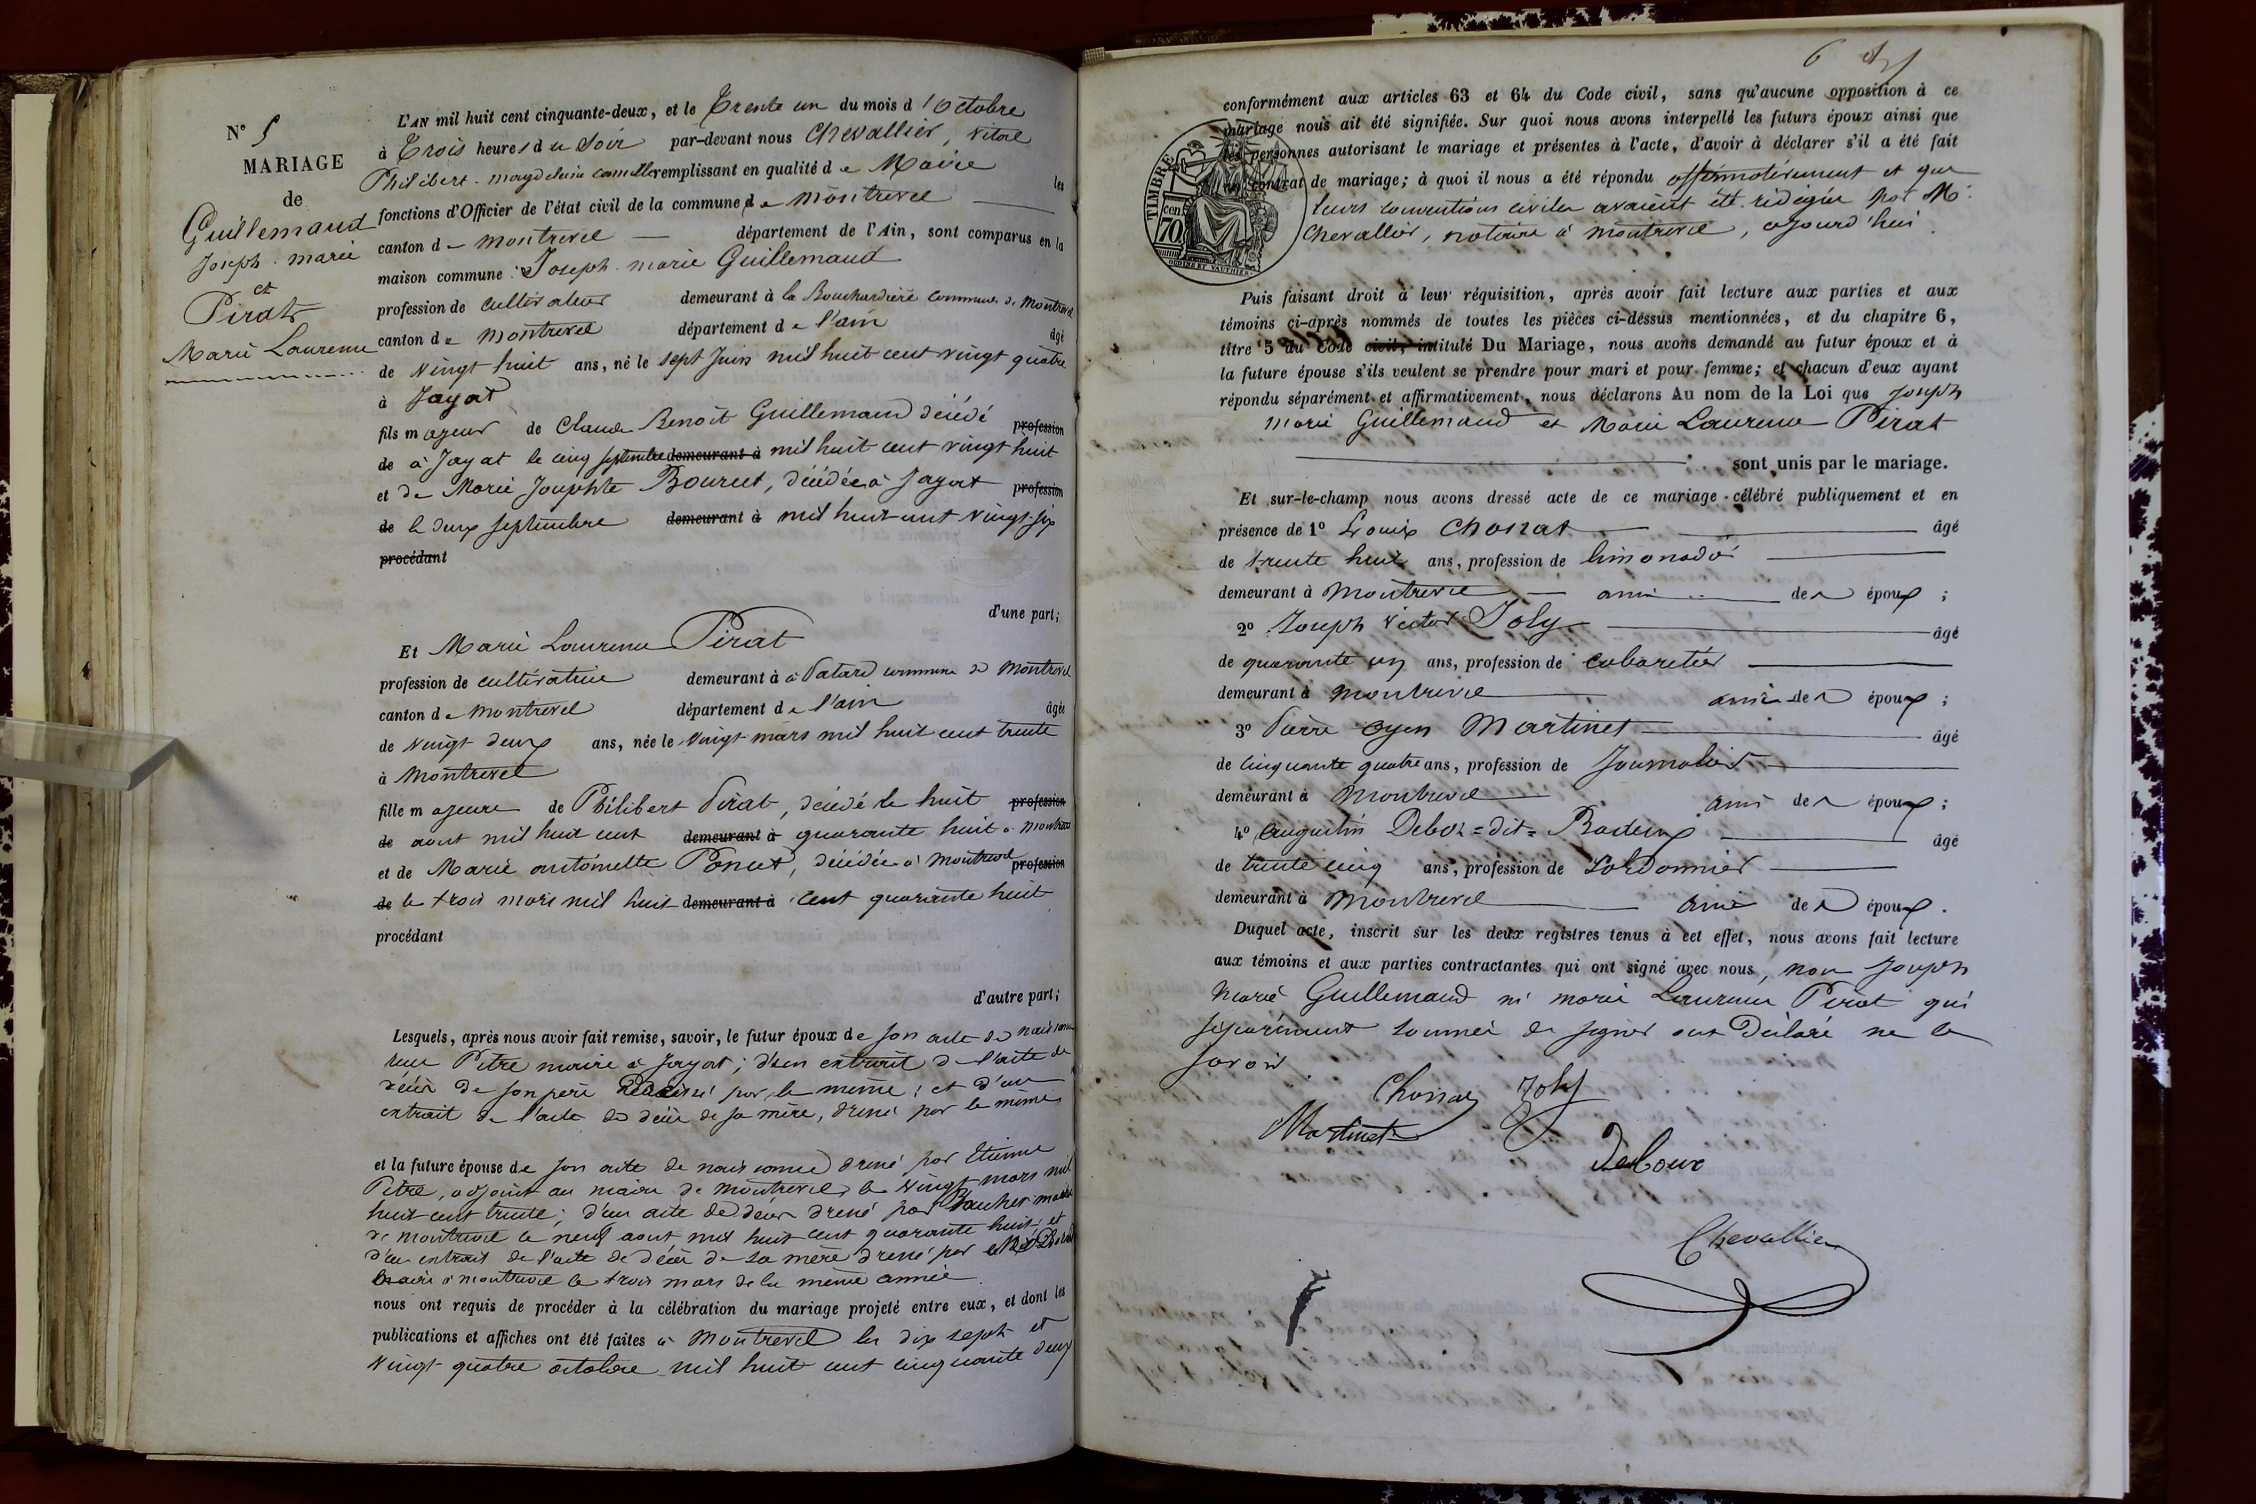 N° 5
MARIAGE
de
Guillemaud
Joseph marie
et
Pirat
Marie Laurence
L'AN mil huit cent cinquante-deux, et le Trente un du mois d'octobre
à Trois heures du Soir par-devant nous Chevallier, Vital
Philibert-magdelain camille remplissant en qualité de Maire les
fonctions d'Officier de l'état civil de la commune de montrevel
canton de montrevel département de l'Ain, sont comparus en la
maison commune : Joseph marie Guillemaud
profession de cultivateur demeurant à la Bouchardière commune de Montrevel
canton de montrevel département de l'ain âgé
de vingt huit ans, né le sept juin mil huit cent vingt quatre
à Jayat
fils majeur de Claude Benoit Guillemaud décédé profession
de à Jayat le cinq septembre demeurant à mil huit cent vingt huit
et de Marie Josephte Bourcet, décédée à Jayat profession
de le deux septembre demeurant à mil huit cent vingt-six
procédant
d'une part;
Et Marie Laurence Pirat
profession de cultivatrice demeurant à à Patard commune de Montrevel
canton de Montrevel département de l'ain âgée
de vingt deux ans, née le vingt mars mil huit cent trente
à Montrevel
fille majeure de Philibert Pirat, décédé le huit profession
de aout mil huit cent demeurant à quarante huit à montrevel
et de Marie antoinette Poncet, décédée à Montrevel profession
de le trois mars mil huit demeurant à cent quarante huit
procédant
d'autre part;
Lesquels, après nous avoir fait remise, savoir, le futur époux de son acte de naissance
Pitre maire à Jayat; d'un extrait de l'acte de
décès de son père par le même; et d'un
extrait de l'acte de décès de sa mère, dressé par le même
et la future épouse de son acte de naissance dressé par Etienne
Pitre, adjoint au maire de montrevel, le vingt mars mil
huit cent trente; d'un acte de décès dressé par maire
de montrevel le neuf aout mil huit cent quarante huit; et
d'un extrait de l'acte de décès de sa mère dressé par
maire à montrevel le trois mars de la même année
nous ont requis de procéder à la célébration du mariage projeté entre eux, et dont les
publications et affiches ont été faites à Montrevel les dix sept et
vingt quatre octobre mil huit cent cinquante deux
6
conformément aux articles 63 et 64 du Code civil, sans qu'aucune opposition à ce
mariage nous ait été signifiée. Sur quoi nous avons interpellé les futurs époux ainsi que
les personnes autorisant le mariage et présentes à l'acte, d'avoir à déclarer s'il a été fait
un contrat de mariage; à quoi il nous a été répondu affirmativement et que
leurs conventions civiles avaient été rédigées par Me
Chevallier, notaire à montrevel, aujourd'hui.
TIMBRE
cen.
70
OUDINE ET VAUTHIER
Puis faisant droit à leur réquisition, après avoir fait lecture aux parties et aux
témoins ci-après nommés de toutes les pièces ci-dessus mentionnées, et du chapitre 6,
titre 5 du Code civil, intitulé Du Mariage, nous avons demandé au futur époux et à
la future épouse s'ils veulent se prendre pour mari et pour femme; et chacun d'eux ayant
répondu séparément et affirmativement, nous déclarons Au nom de la Loi que Joseph
marie Guillemaud et Marie Laurence Pirat
sont unis par le mariage.
Et sur-le-champ nous avons dressé acte de ce mariage célébré publiquement et en
présence de 1° Louis Chonat âgé
de trente huit ans, profession de limonadié
demeurant à Montrevel ami des époux ;
2° Joseph Victor Joly âgé
de quarante un ans, profession de cabaretier
demeurant à Montrevel ami des époux ;
3° Pierre Martinet âgé
de cinquante quatre ans, profession de Journalier
demeurant à Montrevel ami des époux ;
4° augustin Deboz=dit= âgé
de trente cinq ans, profession de Cordonnier
demeurant à Montrevel ami des époux.
Duquel acte, inscrit sur les deux registres tenus à cet effet, nous avons fait lecture
aux témoins et aux parties contractantes qui ont signé avec nous, non Joseph
Marie Guillemaud ni marie Laurence Pirat qui
séparément sommés de signer ont déclaré ne le
savoir.
Chonat Joly
Martinet
Deboux
Chevallier